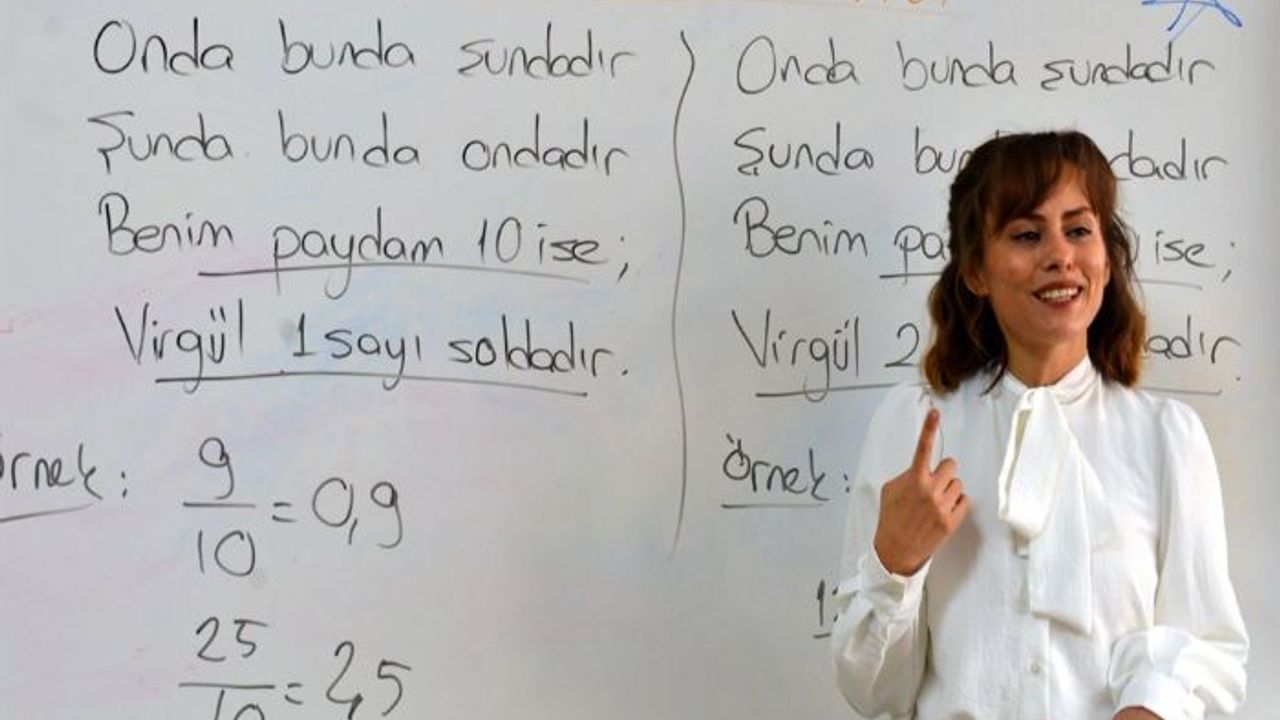 Onda bunda şundadır
Şunda bunda ondadır
Benim paydam 10 ise;
Virgül 1 sayı soldadır.
9/10 = 0,9
25/10 = 2,5
Onda bunda şundadır
Şunda
Benim ise;
Virgül 2
Örnek: